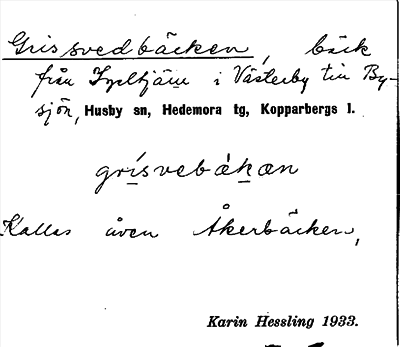 Grissvedbäcken, bäck
från Igeltjärn i Västerby till By-
sjön, Husby sn, Hedemora tg, Kopparbergs l.
grísvebäkan
Kallas även Åkerbäcken,
Karin Hessling 1933.